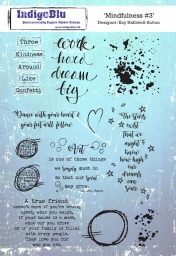 IndigoBlu
'Mindfulness #3'
Designer: Kay Halliwell-Sutton
Throw
Kindness
Around
Like
Confetti
work
hard
dream
big
Dance with your heart &
your feet will follow
The Stars
exist
That we
might
know
how high
our
dreams
can
soar
Art
is one of those things
we
must do
so that our Soul
may grow.
A true friend
doesn't care if you're broke,
upset, what you weigh,
if your house is a mess,
what you drive
or if your family is filled
with crazy people.
They love you for
who you are.